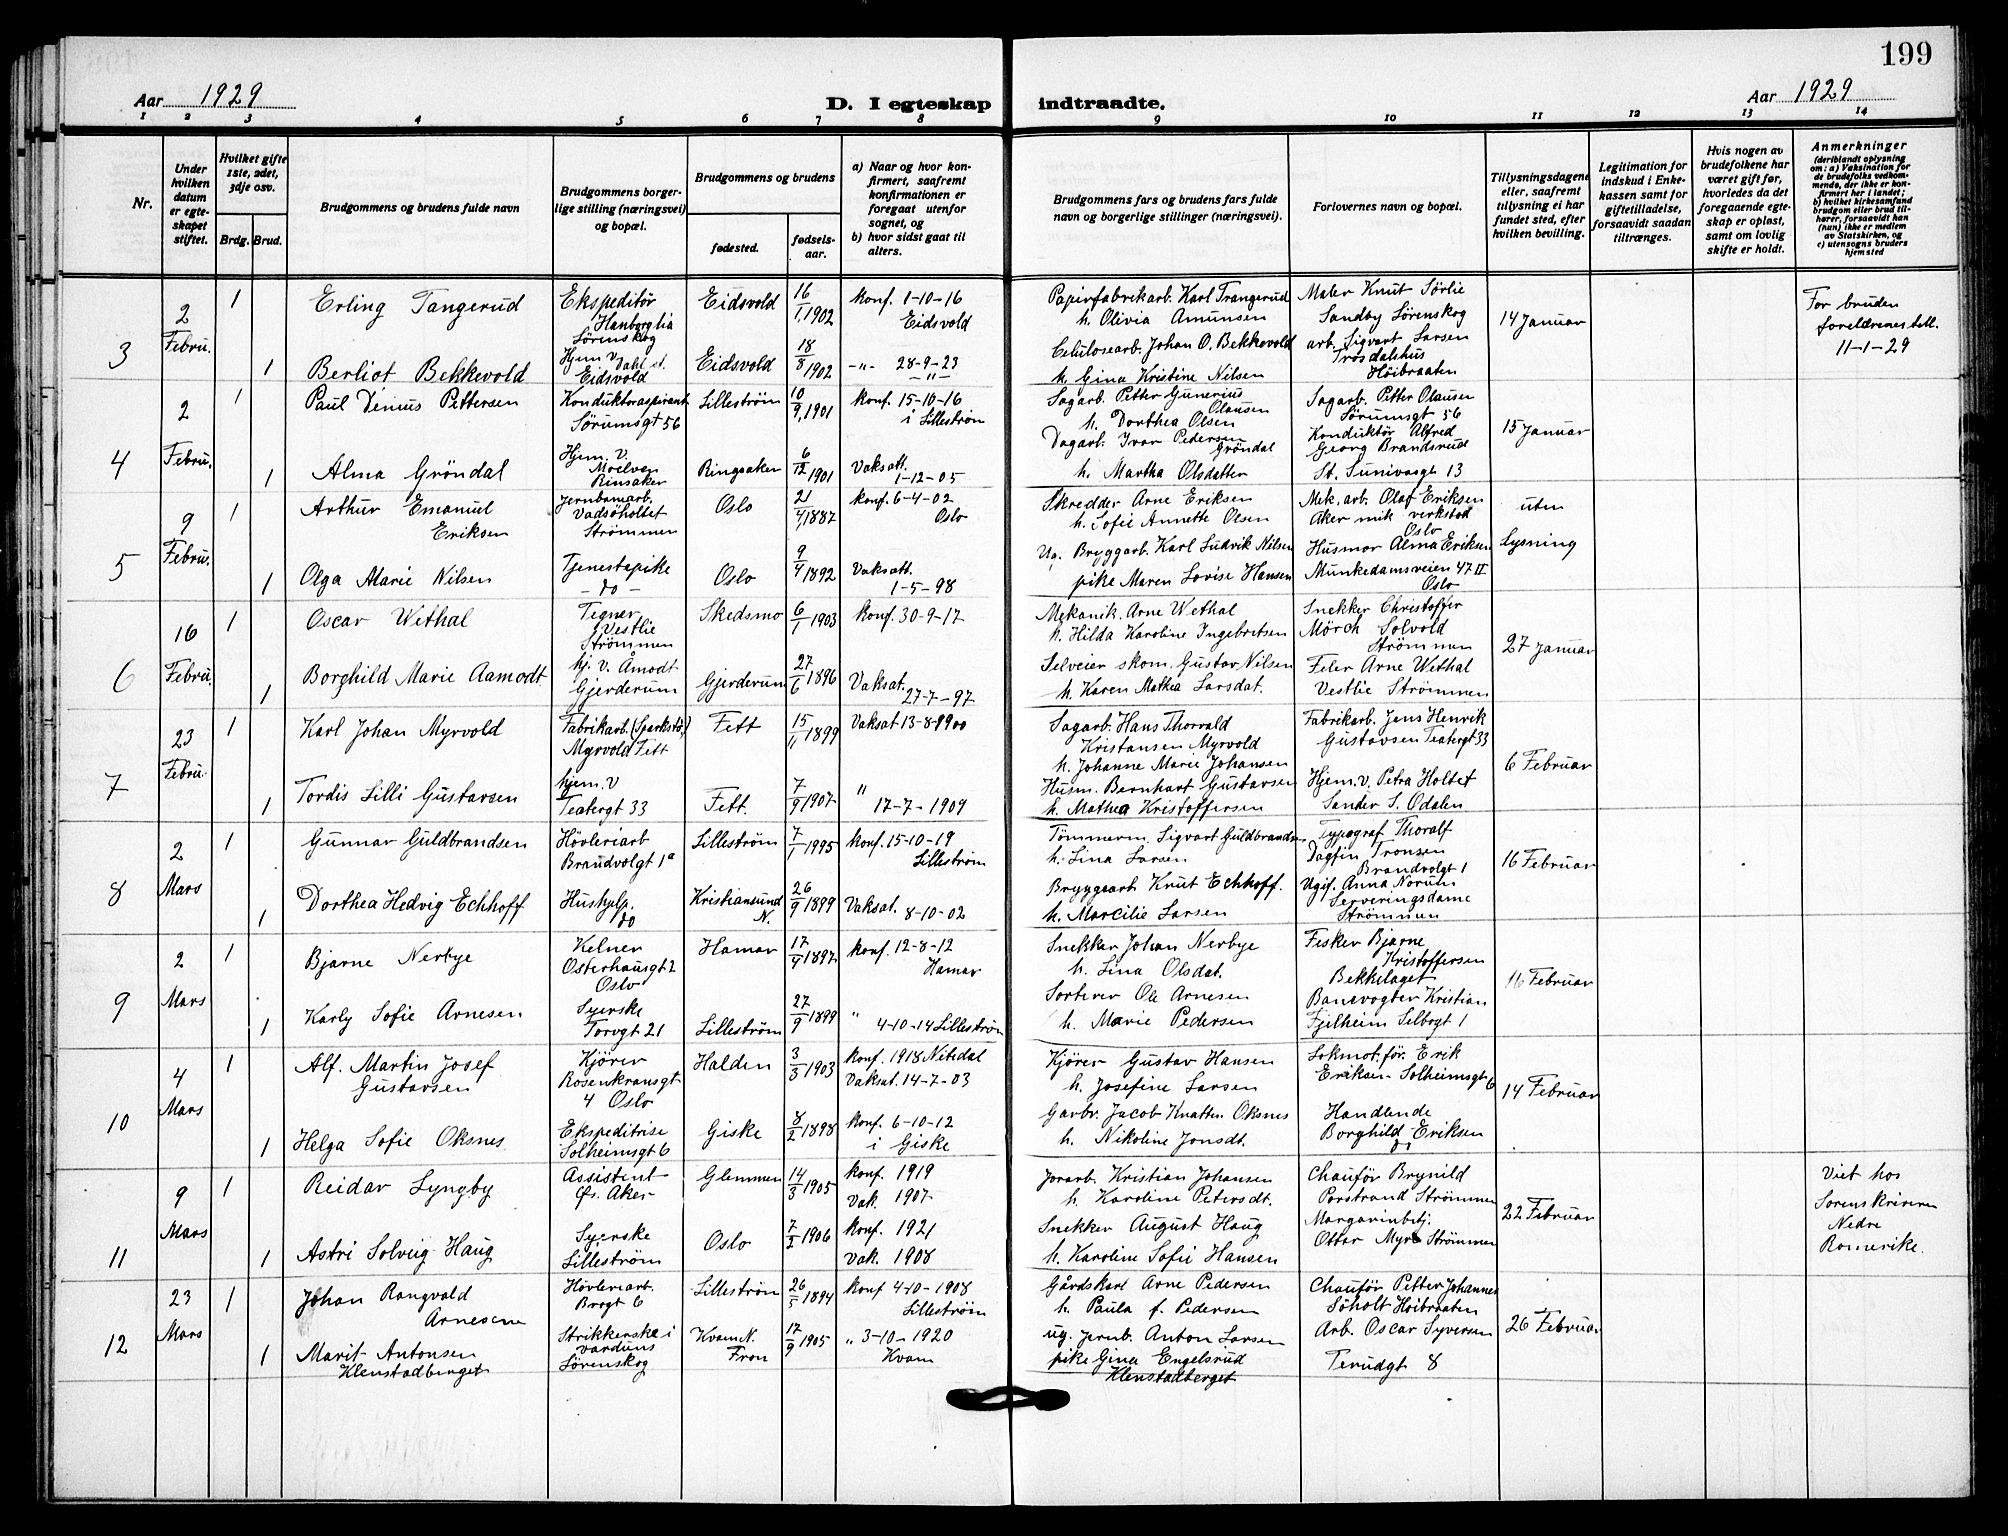 199
Aar 1929
D. I egteskap indtraadte.
Aar 1929
1 2 3 4 5 6 7 8 9 10 11 12 13 14
Nr.
Under hvilken datum er egteskapet stiftet.
Hvilket gifte 1ste, 2det, 3dje osv.
Brdg. Brud.
Brudgommens og brudens fulde navn
Brudgommens borgerlige stilling (næringsvei) og bopæl.
Brudgommens og brudens
fødested.
fødselsaar.
a) Naar og hvor konfirmert, saafremt konfirmationen er foregaat utenfor sognet, og
b) hvor sidst gaat til alters.
Brudgommens fars og brudens fars fulde navn og borgerlige stillinger (næringsvei).
Forlovernes navn og bopæl.
Tillysningsdagene eller, saafremt tillysning ei har fundet sted, efter hvilken bevilling.
Legitimation for indskud i Enkekassen samt for giftetilladelse, forsaavidt saadan tiltrænges.
Hvis nogen av brudefolkene har været gift før, hvorledes da det foregaaende egteskap er opløst, samt om lovlig skifte er holdt.
Anmerkninger
(deriblandt oplysning om: a) Vaksination for de brudefolks vedkommende, der ikke er konfirmert her i landet; b) hvilket kirkesamfund brudgom eller brud tilhører, forsaavidt han (hun) ikke er medlem av Statskirken, og c) utensogns bruders hjemsted
3
2 Febru.
1
Erling Tangerud
Ekspeditør
Hanborglia
Sørenskog
Eidsvold
16/1 1902
konf. 1-10-16
Eidsvold
Papirfabrikarb. Karl Trangerud
h. Olivia Amunsen
Maler Knut Sørlie
Sandby Sörenskog
14 Januar
For bruden
foreldrenes till.
11-1-29
1
Berliot Bekkevold
Hjem v. Dahl st.
Eidsvold
Eidsvold
18/8 1902
-"- 28-9-23
-"-
Celulosearb. Johan O. Bekkevold
h. Gina Kristine Nilsen
arb. Sigvart Larsen
Trosdalshus
Höibraaten
4
2 Febru.
1
Paul Denius Pettersen
Konduktöraspirant
Sørumsgt 56
Lilleström
10/9 1901
konf. 15-10-16
i Lilleström
Sagarb. Petter Gunerius
Olausen
h. Dorthea Olsen
Sagarb. Petter Olausen
Sørumsgt 56
15 Januar
1
Alma Gröndal
Hjem. v.
Moelven
Rinsaker
Ringsaker
6/12 1901
Vaksatt.
1-12-05
Dagarb. Ivar Pedersen
Gröndal
h. Martha Olsdatter
Konduktør Alfred
Georg Brandsrud
St. Sunivasgt 13
5
9 Febru.
1
Arthur Emanuel
Eriksen
Jernbanearb.
Vadsöholtet
Strömmen
Oslo
21/4 1887
konf. 6-4-02
Oslo
Skredder Arne Eriksen
h. Sofie Annette Olsen
Mek. arb. Olaf Eriksen
Aker mek verkstad
Oslo
uten
Lysning
1
Olga Marie Nilsen
Tjenestepike
- do -
Oslo
9/4 1892
Vaksatt.
1-5-98
Ug. Bryggarb. Karl Ludvik Nilsen
pike Maren Lovise Hansen
Husmor Alma Eriksen
Munkedamsveien 47 II
Oslo
6
16 Febru.
1
Oscar Wethal
Tegner
Vestlie
Strömmen
Skedsmo
6/1 1903
konf. 30-9-17
Mekanik. Arne Wethal
h. Hilda Karoline Ingebretsen
Snekker Christoffer
Mörch Solvold
Strömmen
27 Januar
1
Borghild Marie Aamodt
hj. v. Åmodt
Gjerderum
Gjerderum
27/6 1896
Vaksat.
27-7-97
Selveier skom. Gustav Nilsen
h. Karen Mathea Larsdat.
Feler Arne Wethal
Vestlie Strömmen
7
23 Febru.
1
Karl Johan Myrvold
Fabrikarb.
Myrvold Fett
Fett
15/11 1899
Vaksat 13-8-1900
Sagarb. Hans Thorvald
Kristansen Myrvold
h. Johanne Marie Johansen
Fabrikarb. Jens Henrik
Gustavsen Teatergt 33
6 Februar
1
Tordis Lilli Gustavsen
hjem. v
Teatergt 33
Fett.
7/9 1907
"
17-7-1909
Husm. Bernhart Gustavsen
h. Mathea Kristoffersen
Hjem. v. Petra Holtet
Sander S. Odalen
8
2 Mars
1
Gunnar Guldbrandsen
Hövleriarb
Brandvolgt 1a
Lilleström
7/1 1995
konf. 15-10-19
Lilleström
Tömmerm. Sigvart Guldbrandsen
h. Lina Larsen
Typograf Thoralf
Dagfin Tronsen
Brandvolgt 1
16 Februar
1
Dorthea Hedvig Echhoff
Hushjelp.
do
Kristiansund
N.
26/9 1899
Vaksat. 8-10-02
Bryggearb Knut Echhoff.
h. Marcilie Larsen
Ugif. Anna Norum
Serveringsdame
Strömmen
9
2 Mars
1
Bjarne Nerbye
Kelner
Osterhausgt 2
Oslo
Hamar
17/9 1897
konf. 12-8-12
Hamar
Snekker Johan Nerbye
h. Lina Olsdat.
Fisker Bjarne
Kristoffersen
Bekkelaget
16 Februar
1
Karly Sofie Arnesen
Syerske
Torvgt 21
Lilleström
27/9 1899
" 4-10-14 Lilleström
Sorterer Ole Arnesen
h. Marie Pedersen
Banevogter Kristian
Fjilheim Selbogt 1
10
4 Mars
1
Alf. Martin Josef
Gustavsen
Kjörer
Rosenkransgt
4 Oslo
Halden
3/3 1903
konf. 1918 Nitedal
Vaksat. 14-7-03
Kjörer Gustav Hansen
h. Josefine Larsen
Lokmot. för. Erik
Eriksen Solheimsgt 6
14 Februar
1
Helga Sofie Oksnes
Ekspeditrise
Solheimsgt 6
Giske
8/2 1898
konf. 6-10-12
i Giske
Garbr. Jacob Knutten Oksnes
h. Nikoline Jonsdt.
Handlende
Borghild Eriksen
11
9 Mars
1
Reidar Lyngby
Assistent
Ø. Aker
Glemmen
14/3 1905
konf. 1919
Vak. 1907
Jorarb. Kristian Johansen
h. Karoline Petersdt.
Chauför Brynild
Porstrand Strömmen
22 Februar
Viet hos
Sorenskriveren
Nedre
Romerike.
1
Astri Solveig Haug
Syerske
Lilleström
Oslo
7/2 1906
konf. 1921
Vak. 1908
Snekker August Haug
h. Karoline Sofie Hansen
Margarinbetj.
Ottar Myre Strömmen
12
23 Mars
1
Johan Rangvald
Arnesene
Hövleriarb.
Brogt 6
Lilleström
26/5 1894
konf 4-10-1908
Lilleström
Gårdskarl Arne Pedersen
h. Paula f. Pedersen
Chauför Petter Johannes
Söholt Höibraaten
26 Februar
1
Marit Antonsen
Klenstadberget
Strikkerske i
varduns
Sörenskog
Kvam N.
Fron
17/9 1905
" 3-10-1920
Kvam
ug. Jernb. Anton Larsen
pike Gina Engelsrud
Klenstadberget
Arb. Oscar Syversen
Terudgt 8